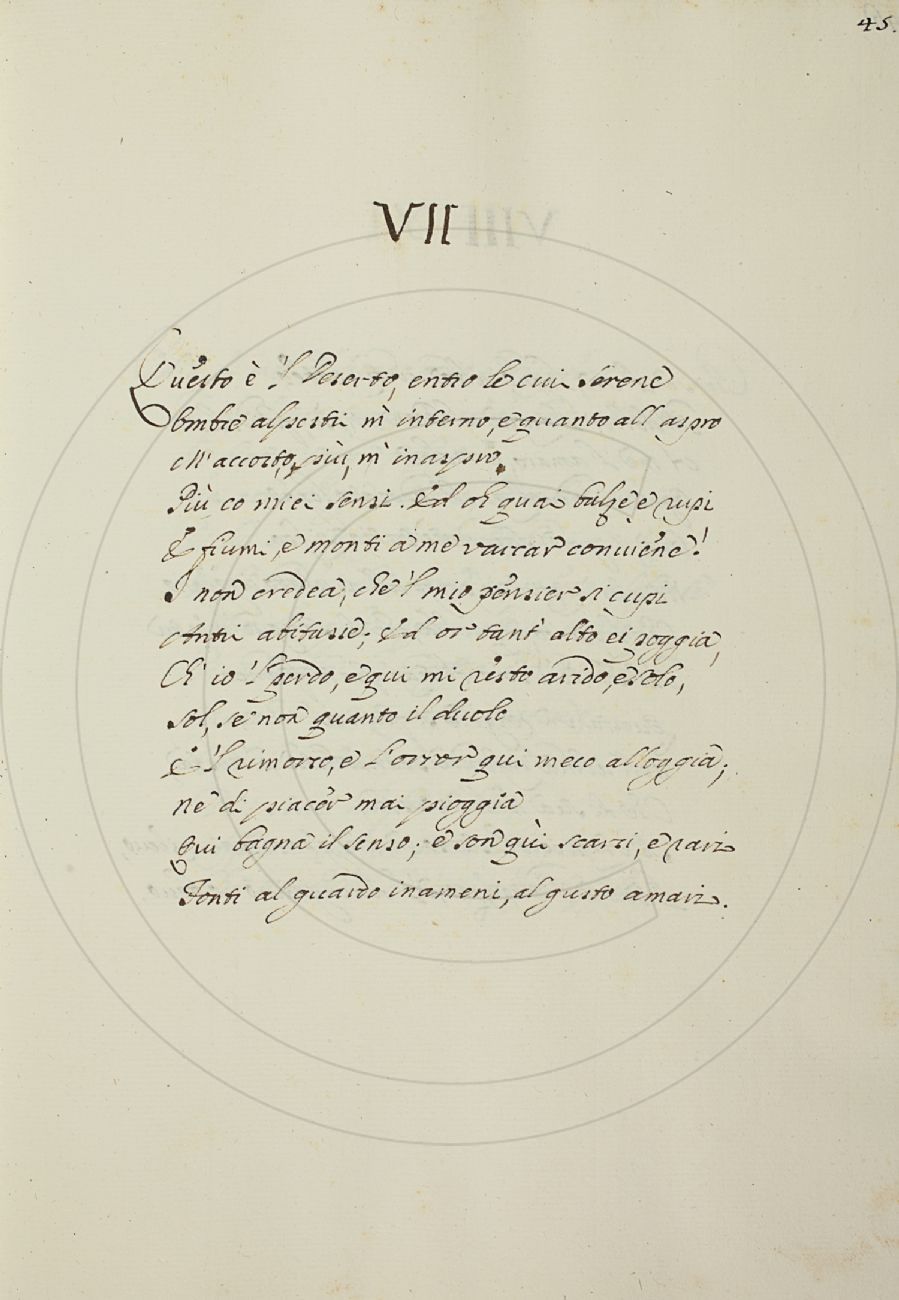 45.
VII
Questo è 'l Deserto, entro le cui serene
Ombre alpestri m' interno, e quanto all' aspro
M' accosto, più m' inaspro
Più co miei sensi. Ed oh quai balze, e rupi
E fiumi, e monti a me varcar conviene!
I non credea, che 'l mio pensier sì cupi
Antri abitasse; Ed or tant' alto ei poggia,
Ch' io 'l perdo, e qui mi resto arido, e solo,
Sol, se non quanto il duolo
E 'l rimorso, e l'orror qui meco alloggia;
Nè di piacer mai pioggia
Qui bagna il senso; e son quì scarsi, e rari
Fonti al guardo inameni, al gusto amari.